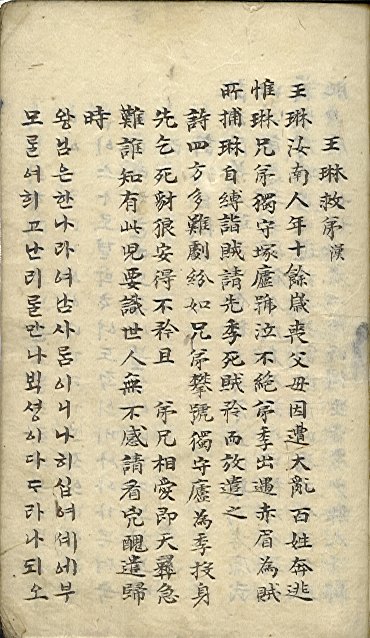 王琳救弟漢
王琳汝南人年十餘歲喪父母因遭大亂百姓奔逃
惟琳兄弟獨守塚廬號泣不絕弟季出遇赤眉為賊
所捕琳自縛詣賊請先季死賊矜而放遣之
詩四方多難劇紛如兄弟攀號獨守廬為季投身
先乞死豺狼安得不矜且 弟兄相愛即天彛急
難誰知有此兒要識世人無不感請看兇醜遣歸
時
왕님은한나라여남사ᄅᆞᆷ이니나히십여셰예부
모ᄅᆞᆯ여희고난리ᄅᆞᆯ만나ᄇᆡᆨ셩이다ᄃᆞ라나되오